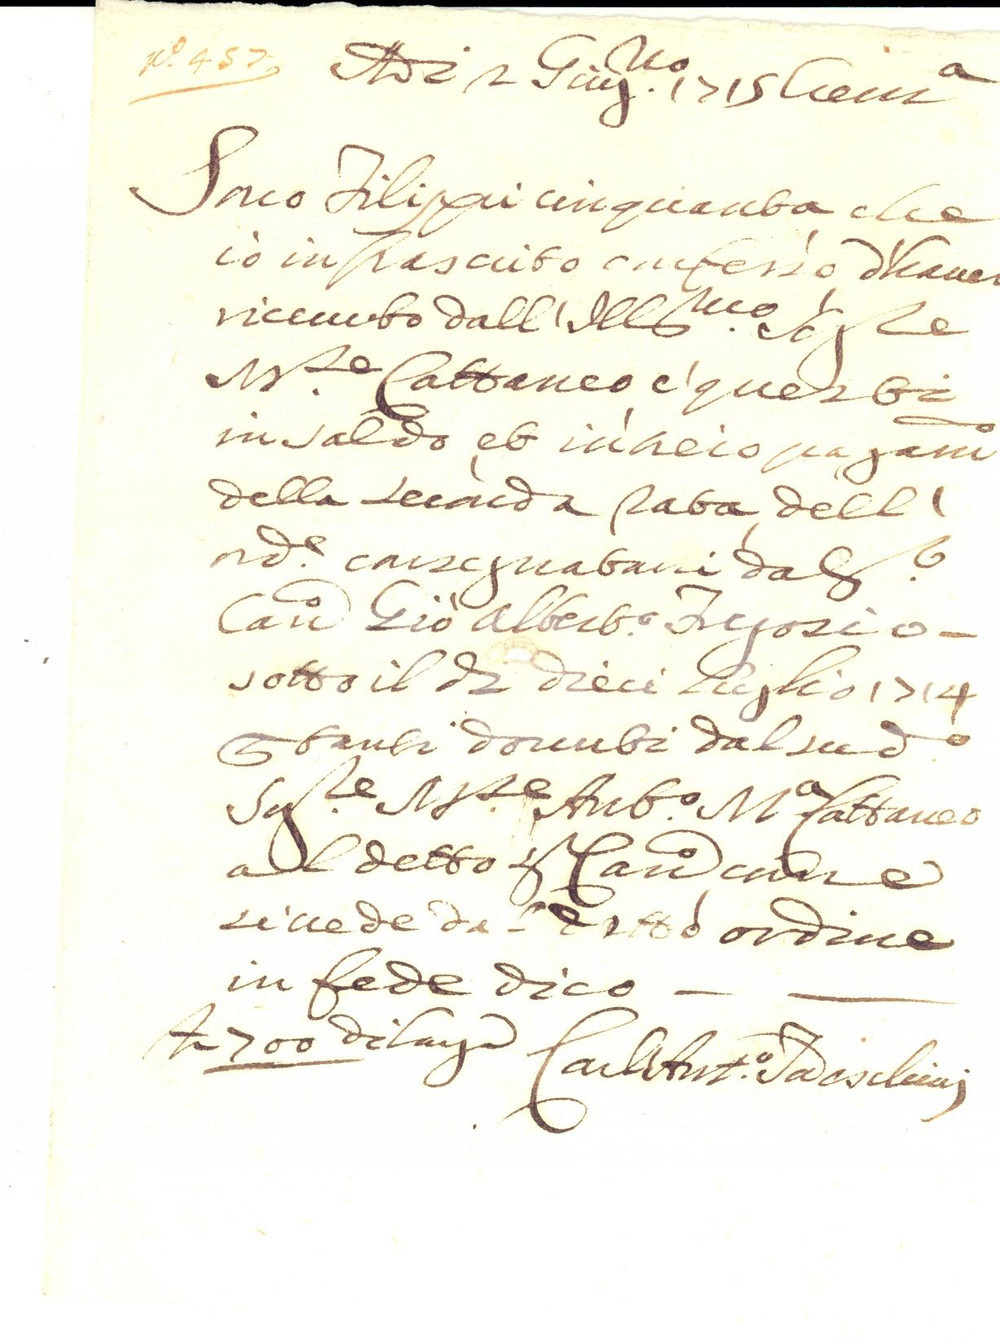 N.o 457
Adi 2 Giug.no 1715 Crem.a
Sono Filippi cinquanta che
io infrascritto confesso d'haver
ricevuto dall'Ill.mo Sig.re
M.se Cattaneo e questi
in saldo et intiero pagam.o
della seconda rata dell'
ord.e consegnatami dal S.r
Can.o Gio Albert.o Fregosi o
sotto il di dieci luglio 1714
tanti dovuti dal sud.o
Sig.re M.se Ant.o M.a Cattaneo
al detto S.r Can.o come
si vede da ordine
in fede dico
700 di
Carl'Ant.o